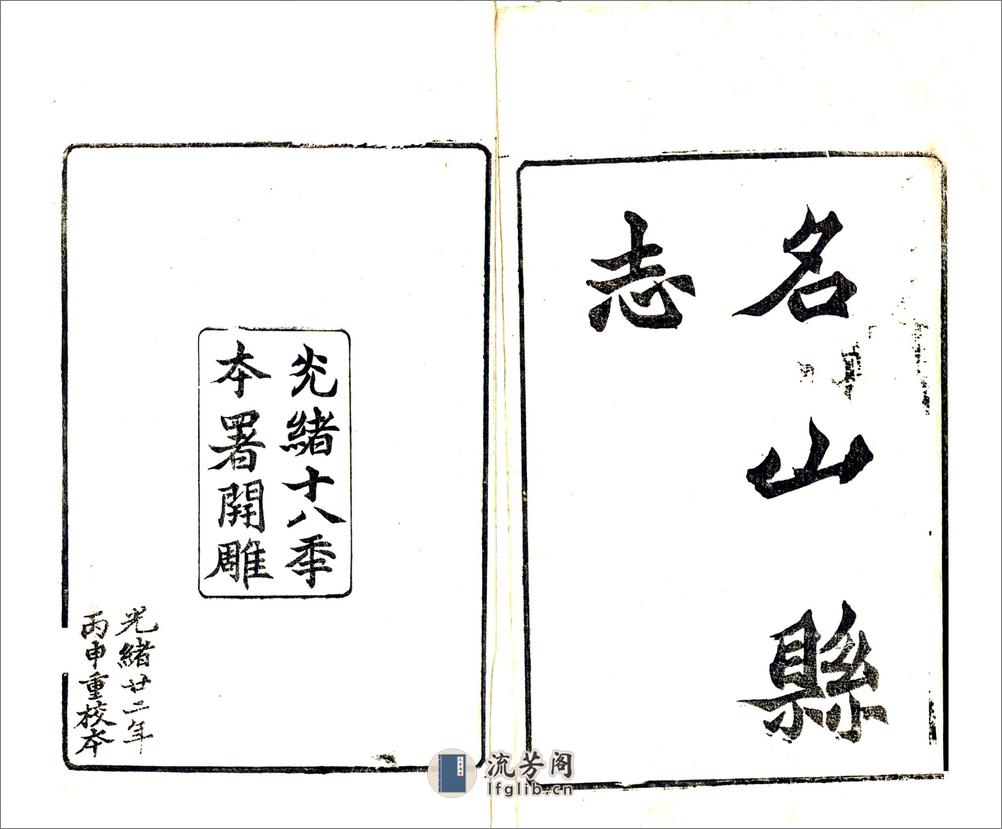 名山縣
志
光緒十八季
本署開雕
光緒廿二年
丙申重校本
流芳阁
lfglib.cn